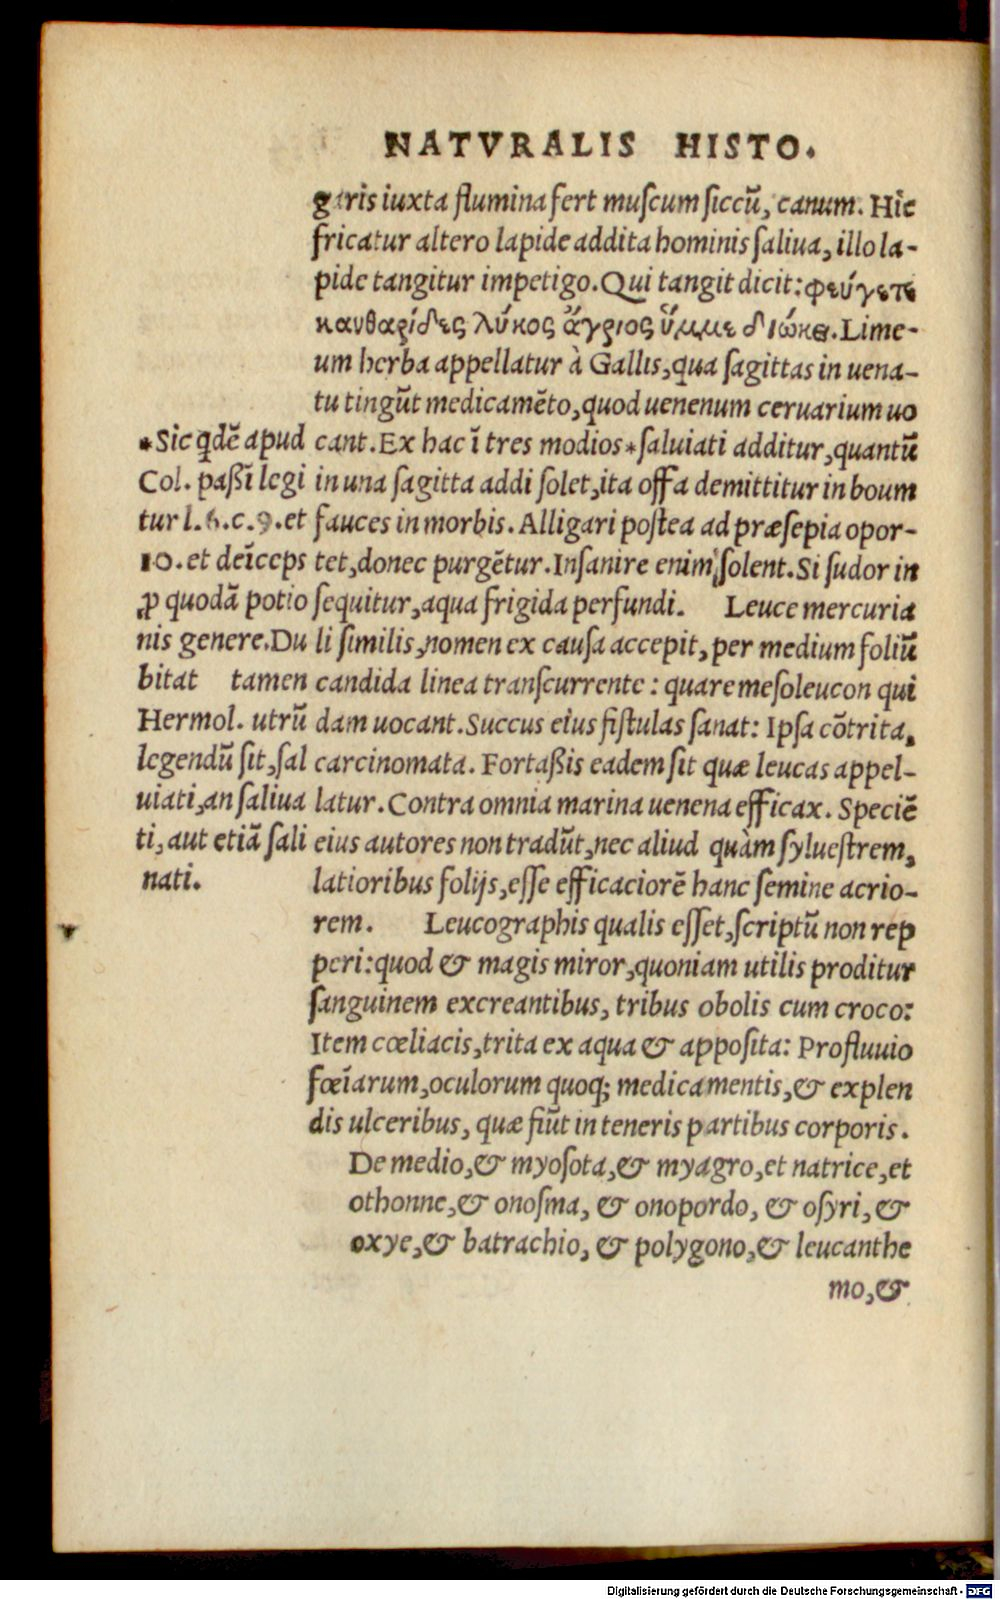 NATVRALIS HISTO.
garis iuxta flumina fert muſcum ſiccũ, canum. Hic
fricatur altero lapide addita hominis ſaliua, illo la-
pide tangitur impetigo. Qui tangit dicit: φεύγετε
κανθαρίδες λύκος ἄγριος ὕμμε διώκει. Lime-
um herba appellatur à Gallis, qua ſagittas in uena-
tu tingũt medicamẽto, quod uenenum ceruarium uo
cant. Ex hac ĩ tres modios *ſaluiati additur, quantũ
in una ſagitta addi ſolet, ita offa demittitur in boum
fauces in morbis. Alligari poſtea ad præſepia opor-
tet, donec purgẽtur. Inſanire enim ſolent. Si ſudor in
ſequitur, aqua frigida perfundi. Leuce mercuria
li ſimilis, nomen ex cauſa accepit, per medium foliũ
candida linea tranſcurrente: quare meſoleucon qui
dam uocant. Succus eius fiſtulas ſanat: Ipſa cõtrita,
carcinomata. Fortaßis eadem ſit quæ leucas appel-
latur. Contra omnia marina uenena efficax. Speciẽ
eius autores non tradũt, nec aliud quàm ſylueſtrem,
latioribus folijs, eſſe efficaciorẽ hanc ſemine acrio-
rem. Leucographis qualis eſſet, ſcriptũ non rep
peri: quod & magis miror, quoniam utilis proditur
ſanguinem excreantibus, tribus obolis cum croco:
Item cœliacis, trita ex aqua & appoſita: Profluuio
fœĩarum, oculorum quoq; medicamentis, & explen
dis ulceribus, quæ fiũt in teneris partibus corporis.
De medio, & myoſota, & myagro, et natrice, et
othonne, & onoſma, & onopordo, & oſyri, &
oxye, & batrachio, & polygono, & leucanthe
mo, &
*Sic qdẽ apud
Col. paßĩ legi
tur l. 6. c. 9. et
10. et deĩceps
ꝓ quodã potio
nis genere. Du
bitat tamen
Hermol. utrũ
legendũ ſit, ſal
uiati, an ſaliua
ti, aut etiã ſali
nati.
Digitalisierung gefördert durch die Deutsche Forschungsgemeinschaft - DFG